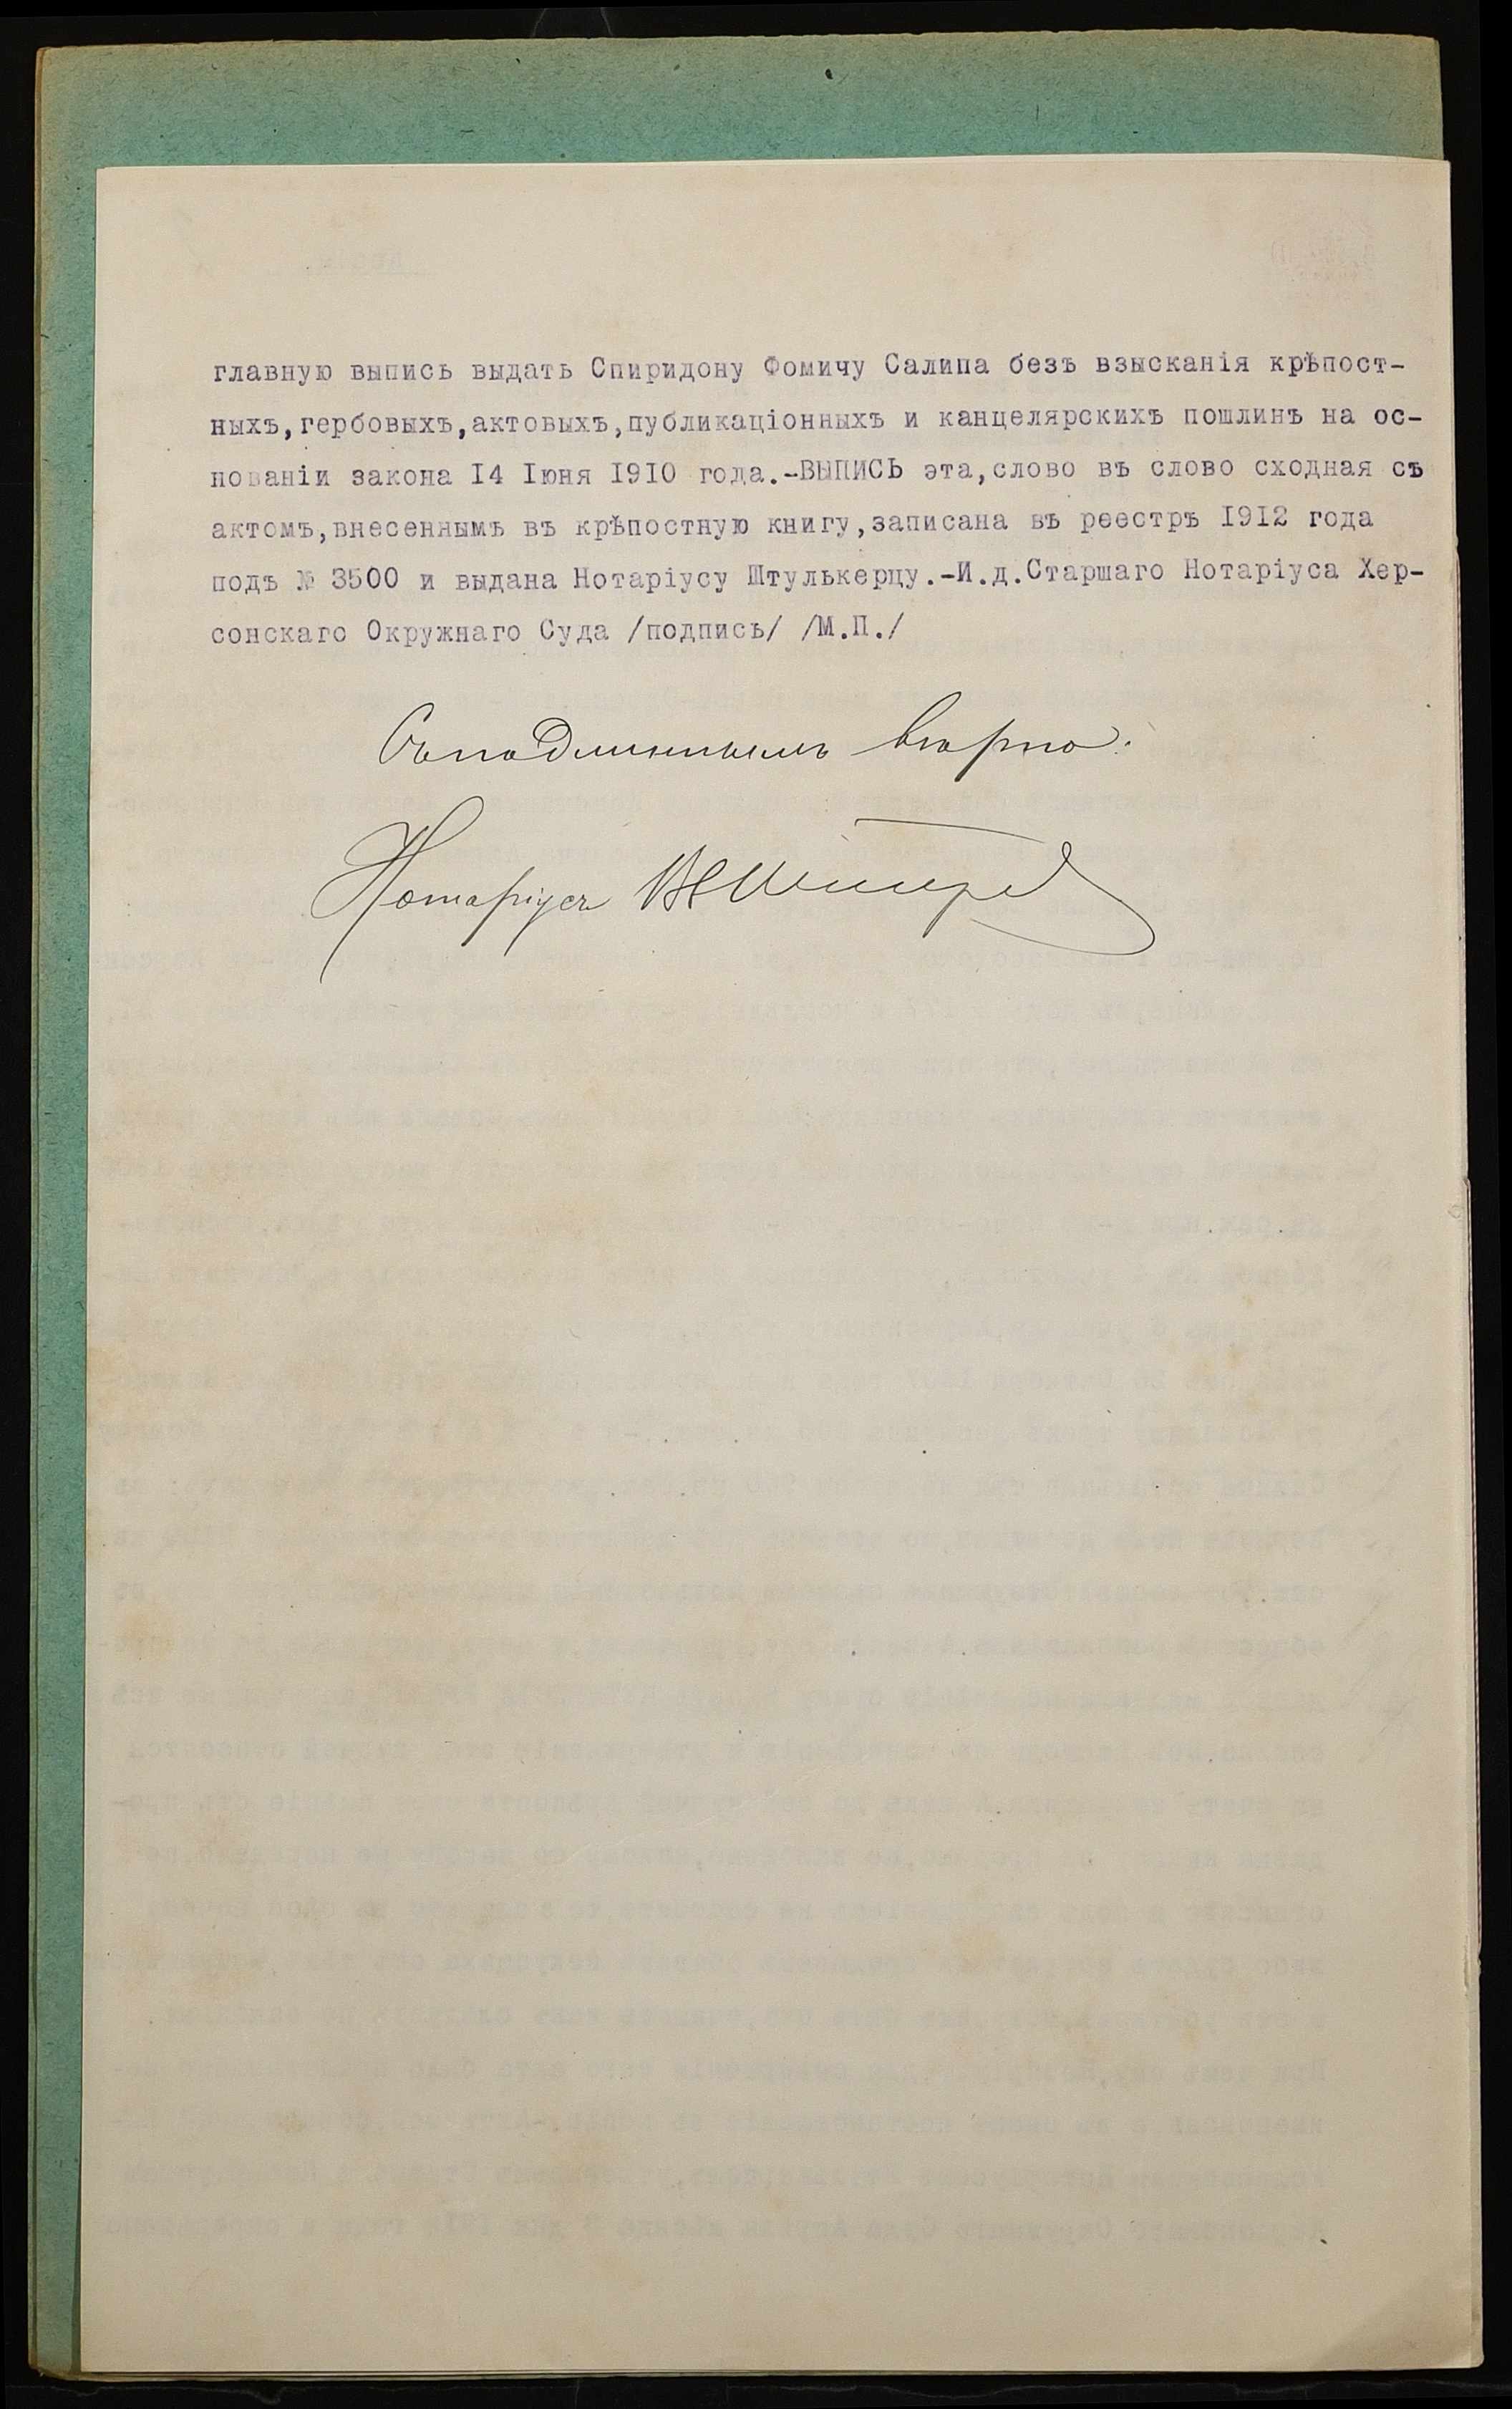 главную выпись выдать Спиридону Фомичу Салипа безъ взысканія крѣпост-
ныхъ,гербовыхъ,актовыхъ,публикаціонныхъ и канцелярскихъ пошлинъ на ос-
нованіи закона I4 Іюня I9I0 года.-ВЫПИСЬ эта,слово въ слово сходная съ
актомъ,внесеннымъ въ крѣпостную книгу,записана въ реестрѣ I9I2 года
подъ № 3500 и выдана Нотаріусу Штулькерцу.-И.д.Старшаго Нотаріуса Хер-
сонскаго Окружнаго Суда /подпись/ /М.П./
Съ подлиннымъ вѣрно:
Нотаріусъ